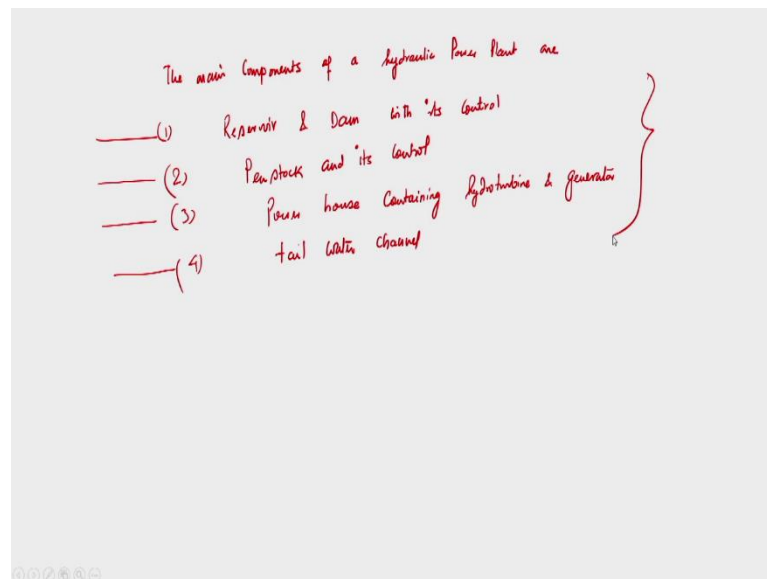 The main Components of a hydraulic Power Plant are
(1) Reservoir & Dam with its Control
(2) Penstock and its Control
(3) Power house Containing hydroturbine & generator
(4) tail water channel